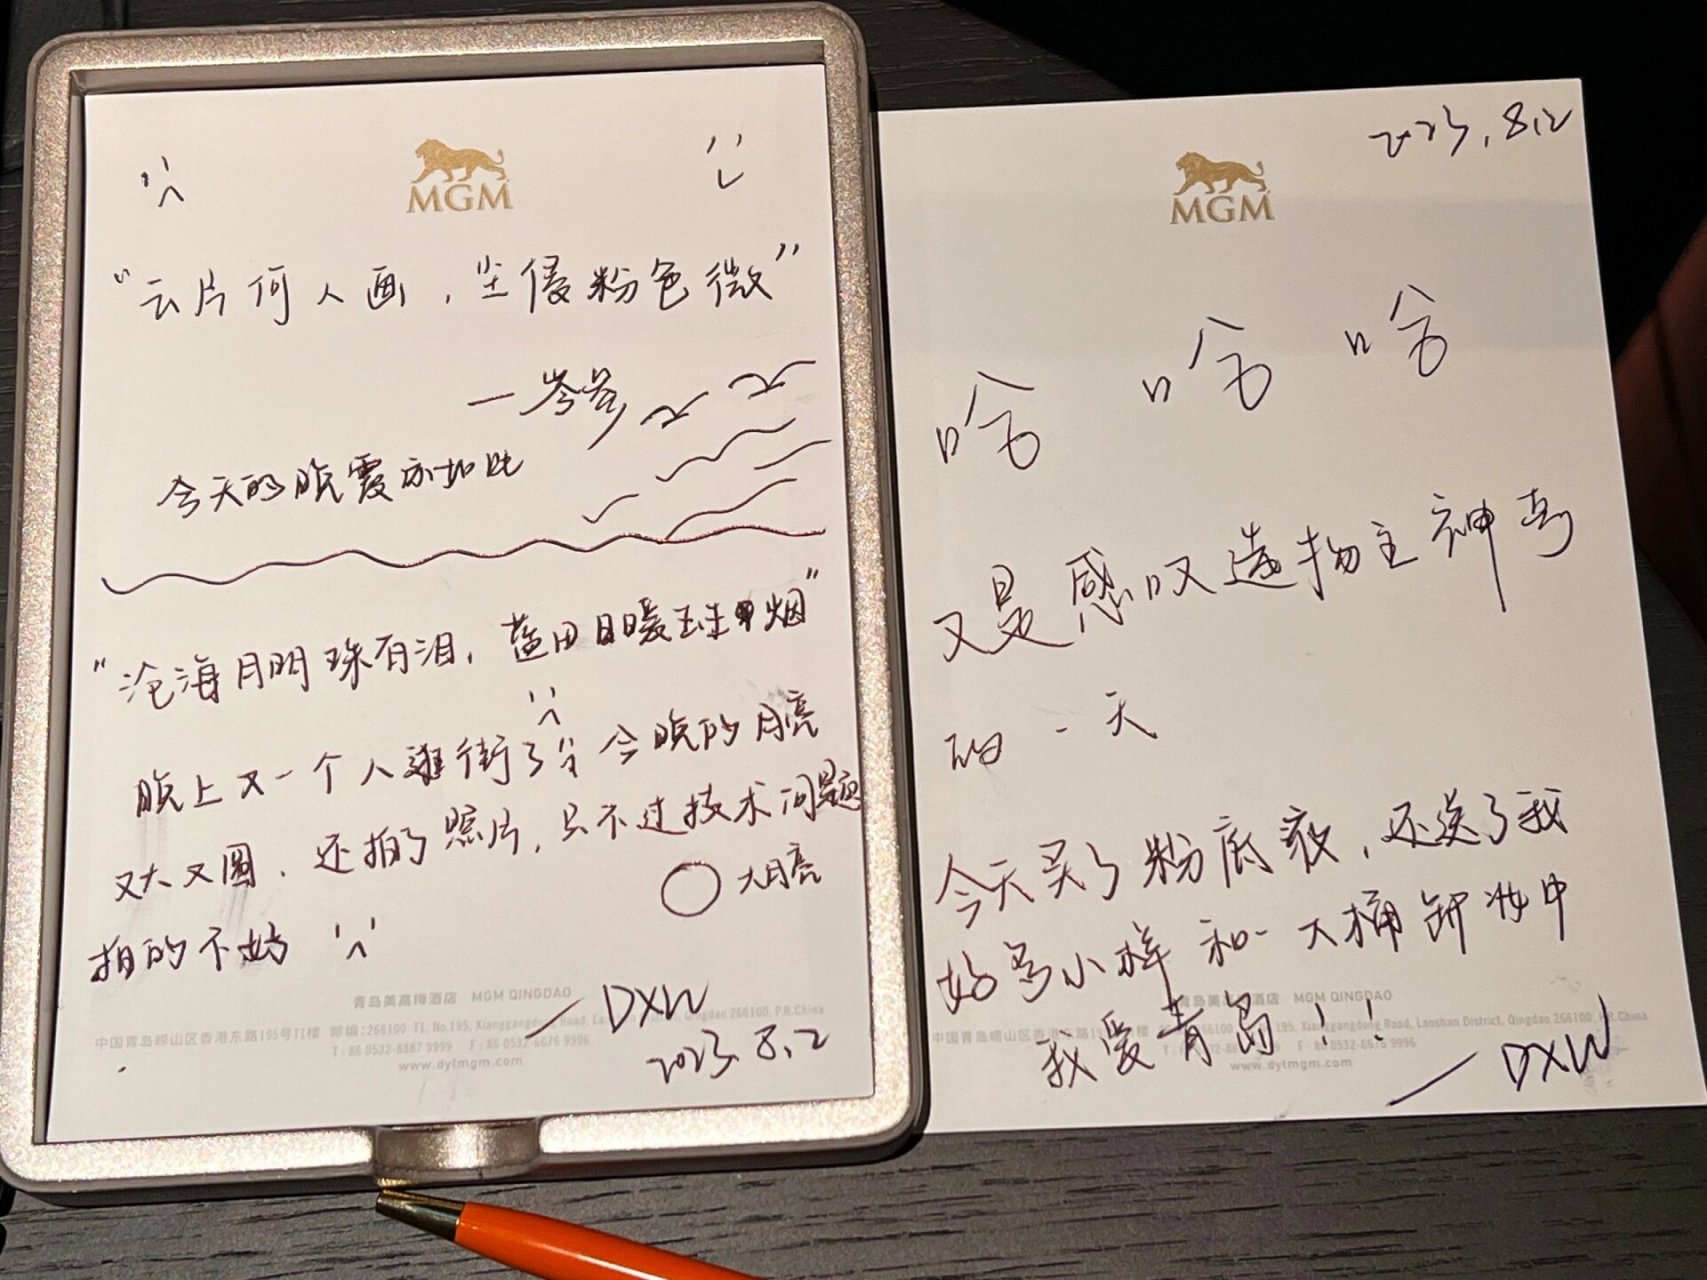 MGM
“云片何人画，尘侵粉色微”
—岑参
今天的晚霞亦如此
“沧海月明珠有泪，蓝田日暖玉生烟”
晚上又一个人逛街了 今晚的月亮
又大又圆，还拍了照片，只不过技术问题
拍的不好
大月亮
青岛美高梅酒店 MGM QINGDAO
—DXW
中国青岛崂山区香港东路195号T1楼 邮编:266100 T1, No.195, Xianggangdong Road, Laoshan District, Qingdao 266100, P.R.China
T: 86 0532-8887 9999 F: 86 0532-6676 9996
www.dytmgm.com
2023.8.2
2023.8.2
MGM
哈 哈 哈
又是感叹造物主神奇
的一天
今天买了粉底液，还送了我
好多小样和一大桶卸妆巾
青岛美高梅酒店 MGM QINGDAO
195, Xianggangdong Road, Laoshan District, Qingdao 266100, P.R.China
我爱青岛！！
F: 86 0532-6676 9996
www.dytmgm.com
—DXW